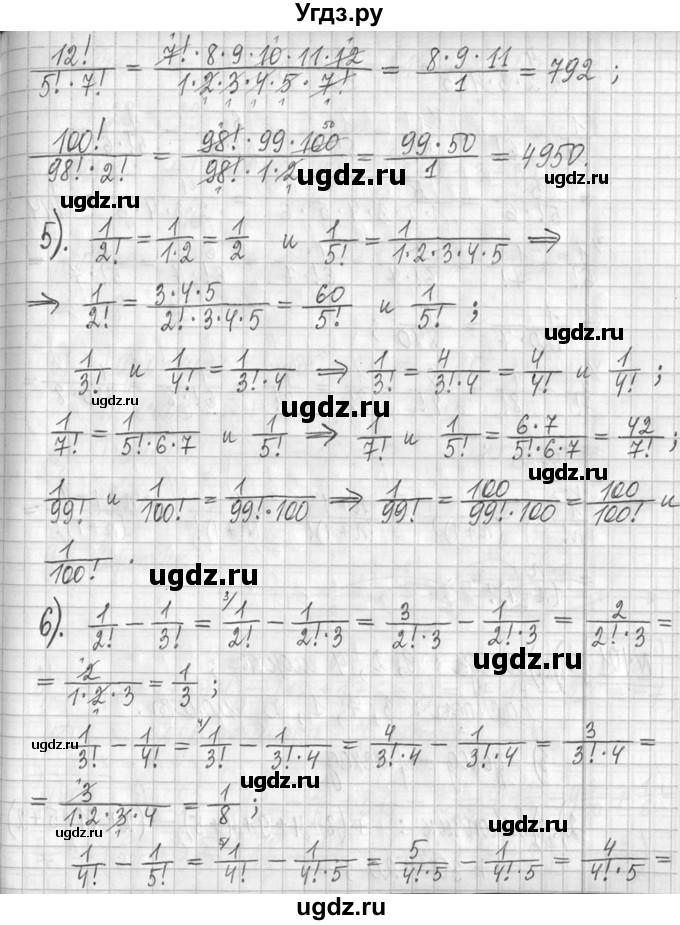 Угдз.ру
12!/(5!·7!) = (7!·8·9·10·11·12)/(1·2·3·4·5·7!) = (8·9·11)/1 = 792 ;
100!/(98!·2!) = (98!·99·100)/(98!·1·2) = (99·50)/1 = 4950.
ugdz.ru ugdz.ru
5). 1/2! = 1/(1·2) = 1/2 и 1/5! = 1/(1·2·3·4·5) ⇒
⇒ 1/2! = (3·4·5)/(2!·3·4·5) = 60/5! и 1/5! ;
ugdz.ru
1/3! и 1/4! = 1/(3!·4) ⇒ 1/3! = 4/(3!·4) = 4/4! и 1/4! ;
ugdz.ru ugdz.ru
1/7! = 1/(5!·6·7) и 1/5! ⇒ 1/7! и 1/5! = (6·7)/(5!·6·7) = 42/7! ;
ugdz.ru
1/99! и 1/100! = 1/(99!·100) ⇒ 1/99! = 100/(99!·100) = 100/100! и
1/100! .
ugdz.ru
6). 1/2! − 1/3! = 3/ 1/2! − 1/(2!·3) = 3/(2!·3) − 1/(2!·3) = 2/(2!·3) =
ugdz.ru
= 2/(1·2·3) = 1/3 ;
1/3! − 1/4! = 4/ 1/3! − 1/(3!·4) = 4/(3!·4) − 1/(3!·4) = 3/(3!·4) =
ugdz.ru ugdz.ru
= 3/(1·2·3·4) = 1/8 ;
ugdz.ru ugdz.ru
1/4! − 1/5! = 5/ 1/4! − 1/(4!·5) = 5/(4!·5) − 1/(4!·5) = 4/(4!·5) =
ugdz.ru
ugdz.ru